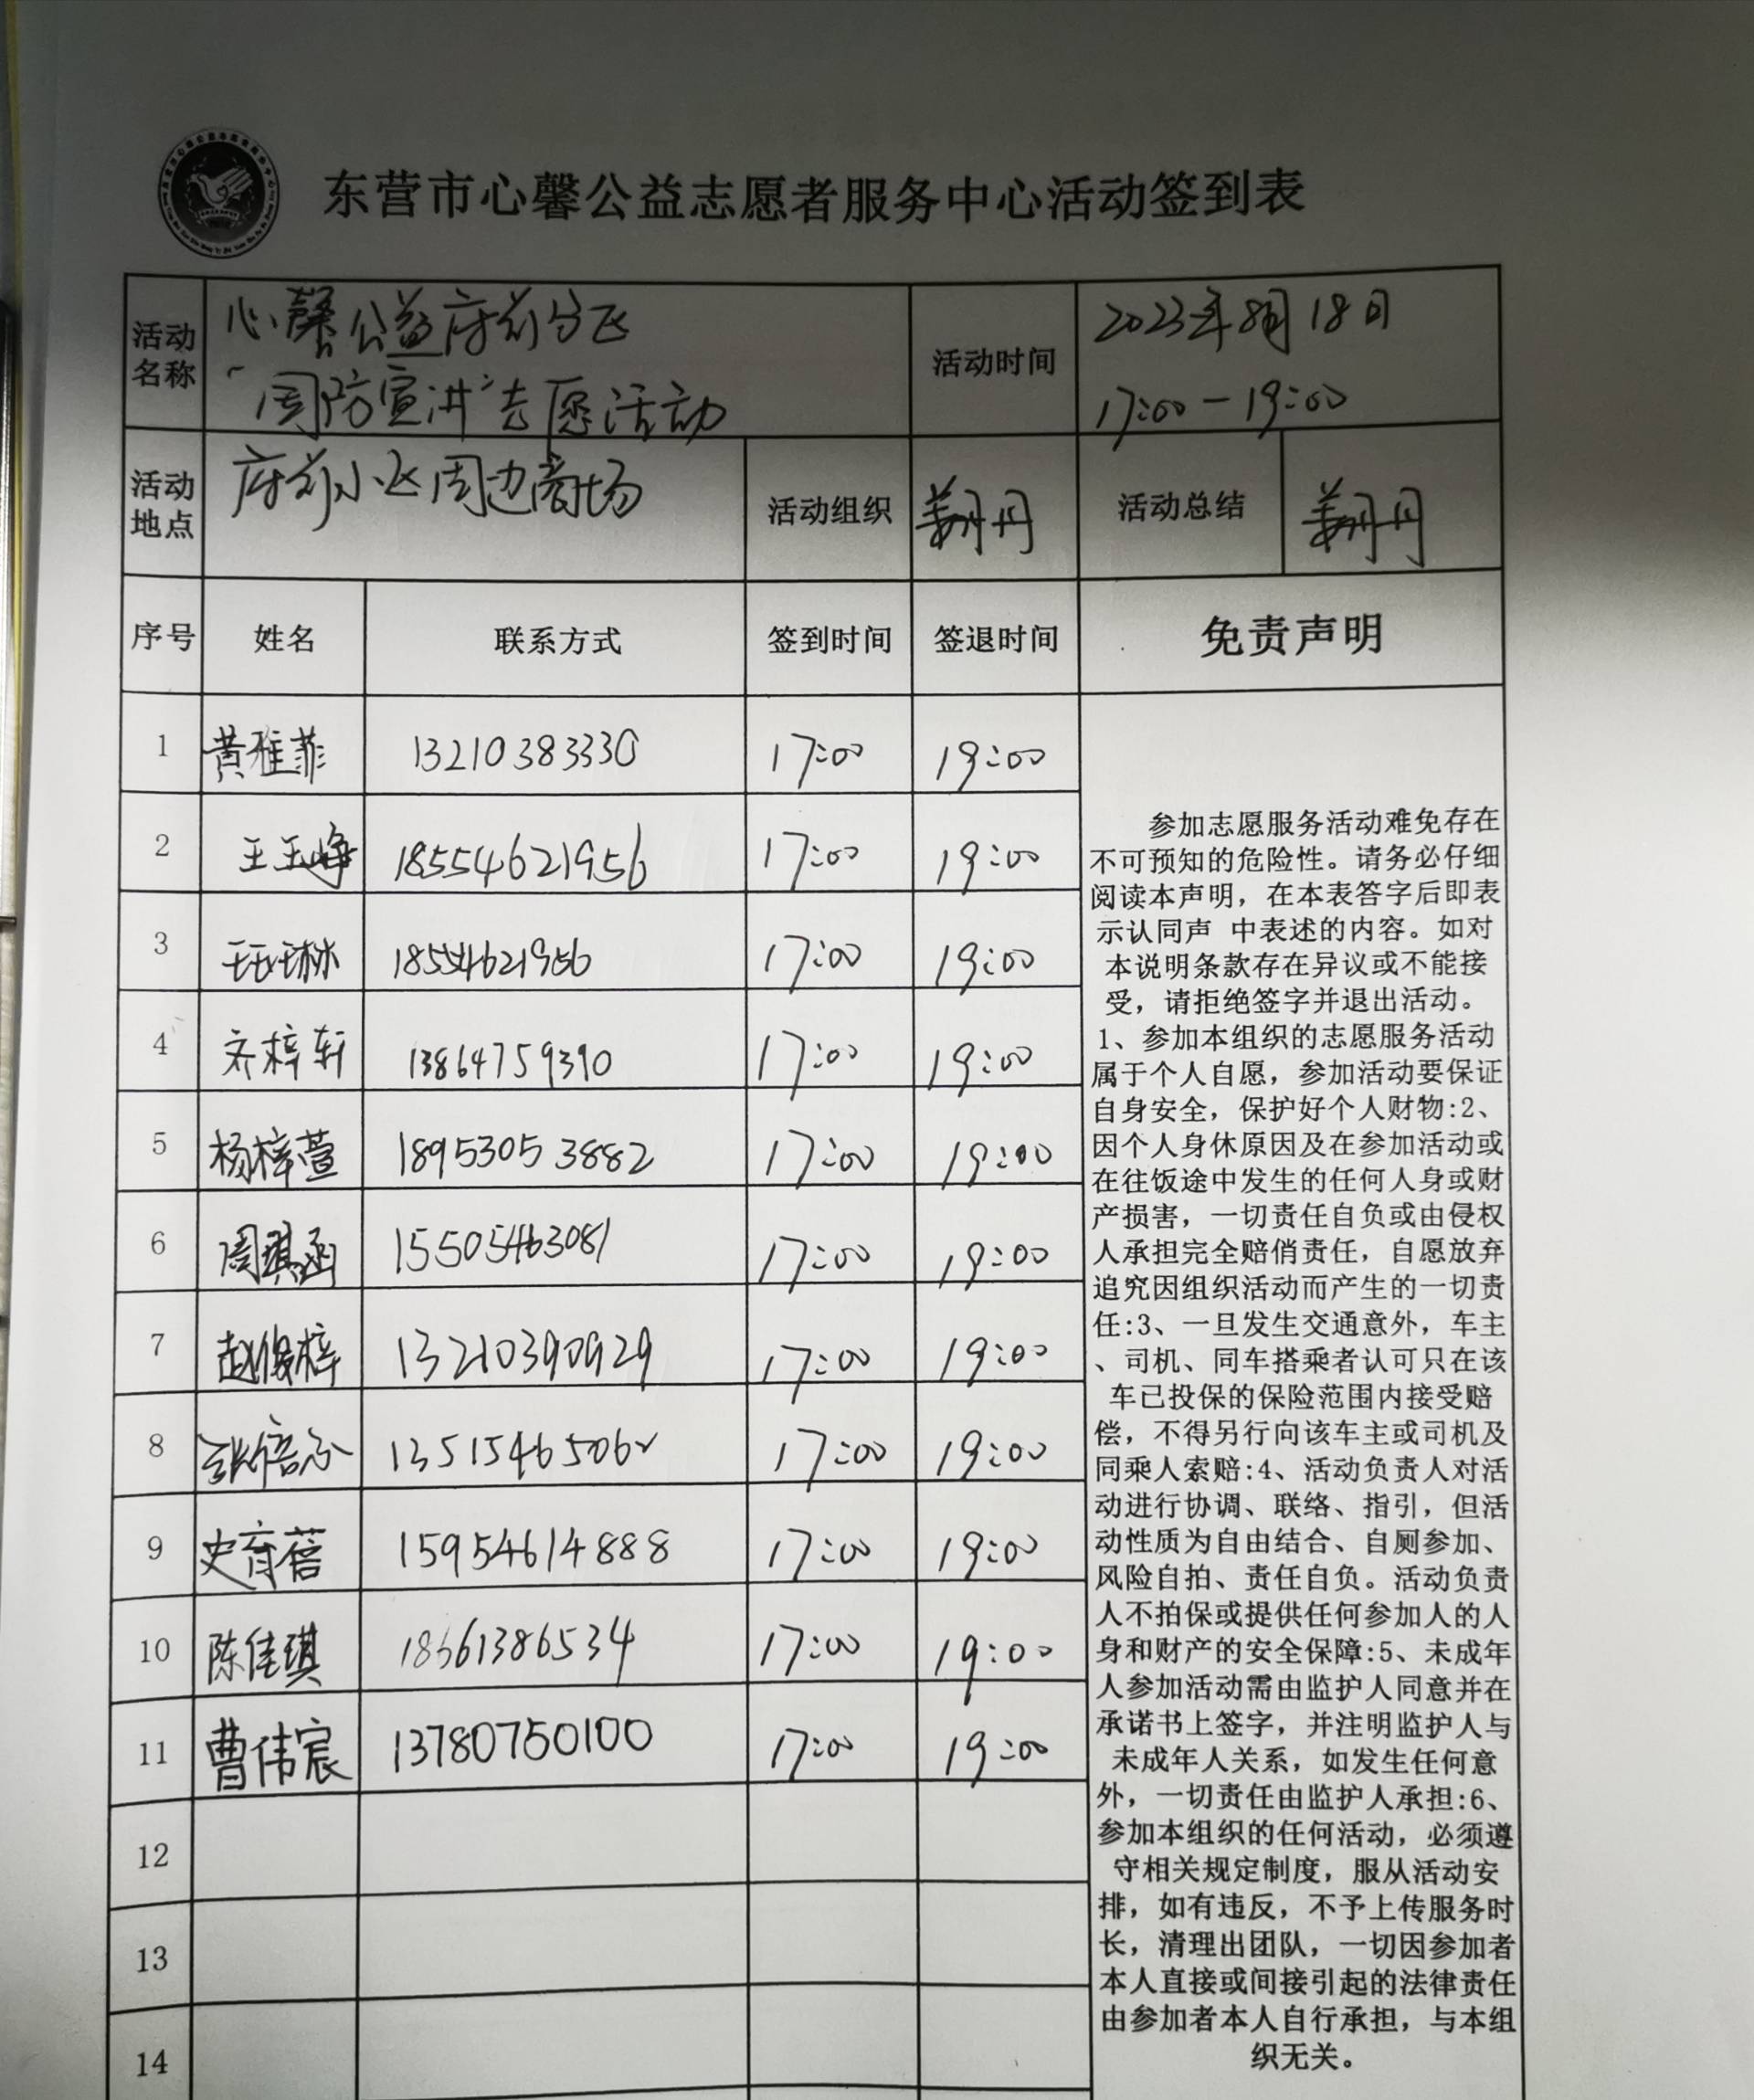 东营市心馨公益志愿者服务中心活动签到表
活动名称
心馨公益府前分区
“国防宣讲”志愿活动
活动时间
2023年8月18日
17:00-19:00
活动地点
府前小区周边商场
活动组织
姜丹丹
活动总结
姜丹丹
序号 姓名 联系方式 签到时间 签退时间 免责声明
1 黄雅菲 13210383330 17:00 19:00
2 王玉峥 18554621956 17:00 19:00
3 王玉琳 18554621956 17:00 19:00
4 齐梓轩 13864759390 17:00 19:00
5 杨梓萱 18953053882 17:00 19:00
6 周琪函 15505463081 17:00 19:00
7 赵俊梓 13210390929 17:00 19:00
8 张倍 13515465062 17:00 19:00
9 史育蓓 15954614888 17:00 19:00
10 陈佳琪 18661386534 17:00 19:00
11 曹伟宸 13780750100 17:00 19:00
12
13
14
参加志愿服务活动难免存在
不可预知的危险性。请务必仔细
阅读本声明，在本表答字后即表
示认同声 中表述的内容。如对
本说明条款存在异议或不能接
受，请拒绝签字并退出活动。
1、参加本组织的志愿服务活动
属于个人自愿，参加活动要保证
自身安全，保护好个人财物:2、
因个人身休原因及在参加活动或
在往饭途中发生的任何人身或财
产损害，一切责任自负或由侵权
人承担完全赔俏责任，自愿放弃
追究因组织活动而产生的一切责
任:3、一旦发生交通意外，车主
、司机、同车搭乘者认可只在该
车已投保的保险范围内接受赔
偿，不得另行向该车主或司机及
同乘人索赔:4、活动负责人对活
动进行协调、联络、指引，但活
动性质为自由结合、自厕参加、
风险自拍、责任自负。活动负责
人不拍保或提供任何参加人的人
身和财产的安全保障:5、未成年
人参加活动需由监护人同意并在
承诺书上签字，并注明监护人与
未成年人关系，如发生任何意
外，一切责任由监护人承担:6、
参加本组织的任何活动，必须遵
守相关规定制度，服从活动安
排，如有违反，不予上传服务时
长，清理出团队，一切因参加者
本人直接或间接引起的法律责任
由参加者本人自行承担，与本组
织无关。